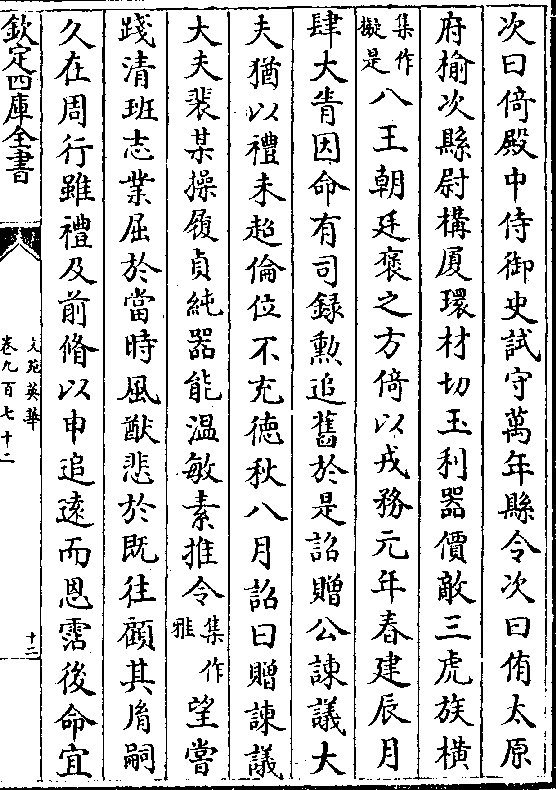 次曰倚殿中侍御史試守萬年縣令次曰侑太原
府榆次縣尉構厦環材切玉利器價敵三虎族横
集作擬是八王朝廷褒之方倚以戎務元年春建辰月
肆大眚因命有司録勲追舊於是詔贈公諫議大
夫猶以禮未超倫位不充徳秋八月詔曰贈諫議
大夫裴某操履貞純器能温敏素推令集作雅望嘗
踐清班志業屈於當時風猷悲於既往顧其胤嗣
久在周行雖禮及前脩以申追逺而恩霑後命宜
欽定四庫全書
文苑英華
卷九百七十二
十二